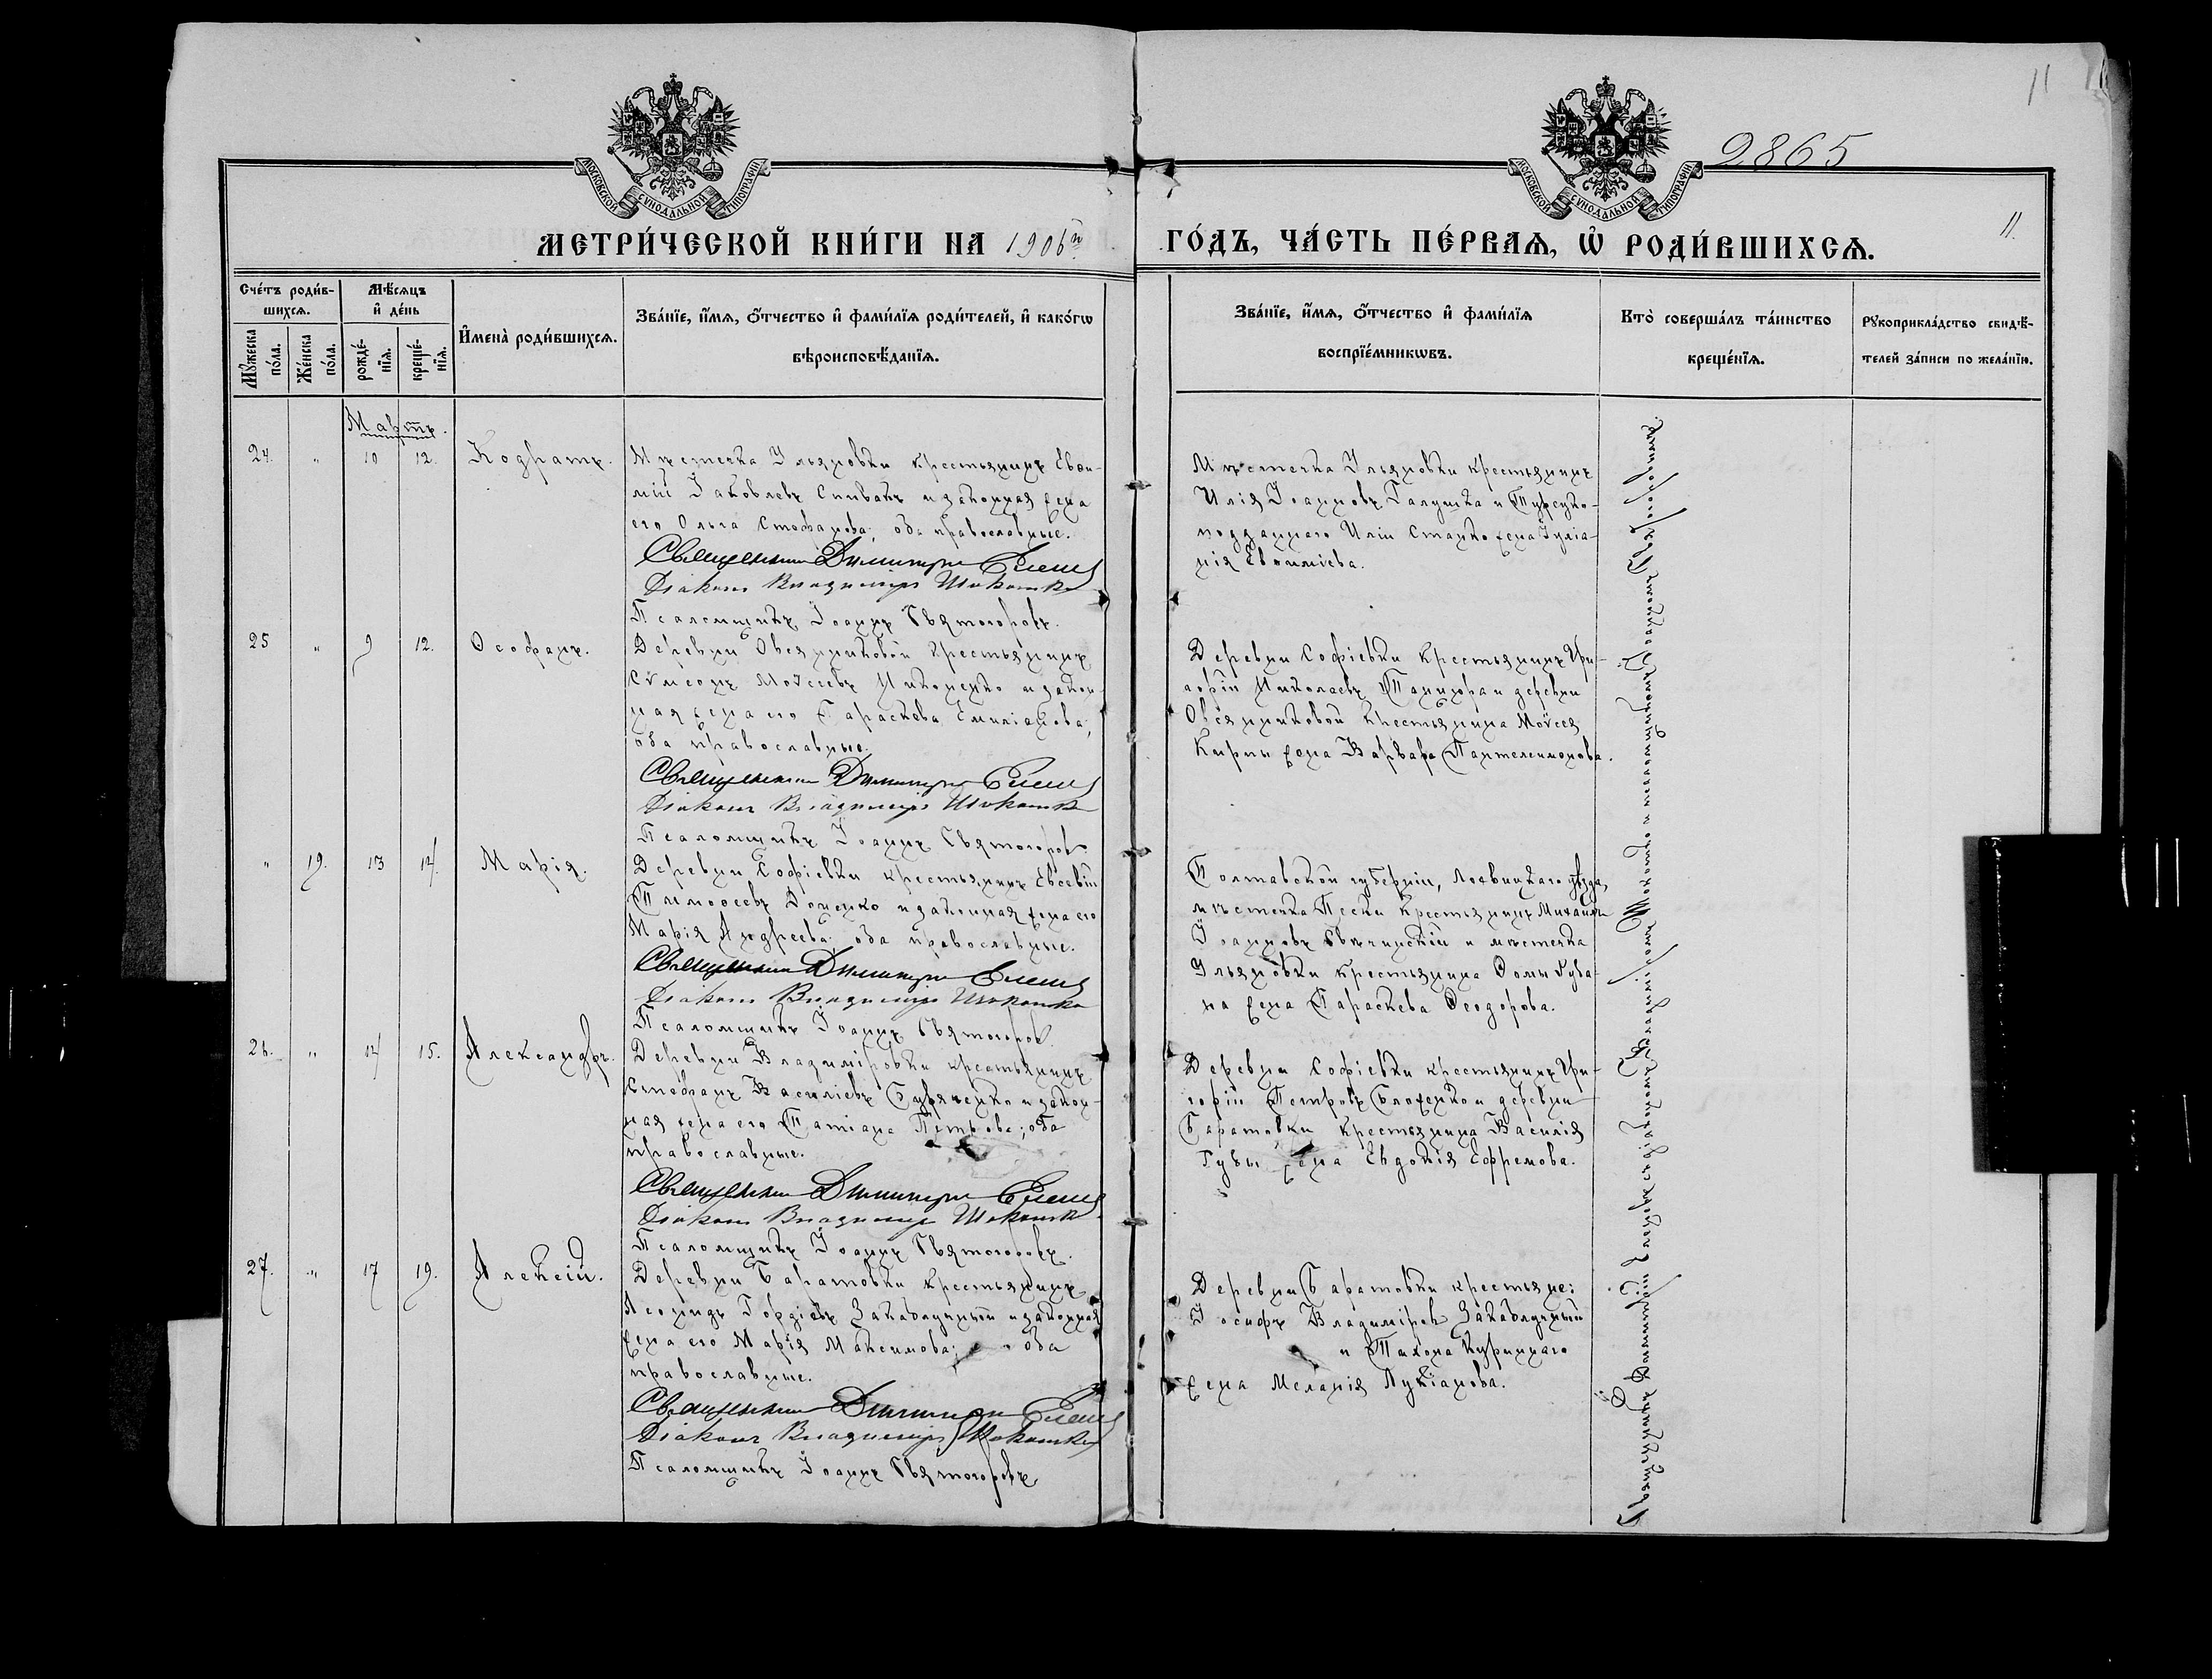 11
2865
МОСКОВСКОЙ СУНОДАЛЬНОЙ ТИПОГРАФІИ
МОСКОВСКОЙ СУНОДАЛЬНОЙ ТИПОГРАФІИ
МЕТРИ́ЧЕСКОЙ КНИ́ГИ НА 1906й ГО́ДЪ, ЧА́СТЬ ПЕ́РВАѦ, Ѡ҆ РОДИ́ВШИХСѦ.
11.
Сче́тъ роди́в-
шихсѧ.
Мꙋ́жеска по́ла.
Же́нска по́ла.
Мѣ́сѧцъ
и҆ де́нь
рожде́-
нїѧ.
креще́-
нїѧ.
И҆мена̀ роди́вшихсѧ.
Зва́нїе, и҆́мѧ, ѻ҆́тчество и҆ фами́лїѧ роди́телей, и҆ како́гѡ
вѣроисповѣ́данїѧ.
Зва́нїе, и҆́мѧ, ѻ҆́тчество и҆ фами́лїѧ
воспрїе́мникѡвъ.
Кто̀ соверша́лъ та́инство
креще́нїѧ.
Рꙋкоприкла́дство свидѣ́-
телей за́писи по жела́нїю.
Мартъ.
24. " 10 12. Кодратъ.
Мѣстечка Ульяновки крестьянинъ Евѳи-
мій Іаковлевъ Спивакъ и законная жена
его Ольга Стефанова; оба православные.
Священникъ Димитрій
Діаконъ Владиміръ Шокотко
Псаломщикъ Іоаннъ Святогоровъ.
Мѣстечка Ульяновки крестьянинъ
Илія Іоанновъ Галушка и Турецко-
подданнаго Иліи Стацко жена Іуліа-
нія Евѳиміева.
25 " 9 12. Ѳеофанъ.
Деревни Овсянниковой крестьянинъ
Сѵмеонъ Моѵсеевъ Никонецко и закон-
ная жена его Параскева Емиліанова;
оба православные.
Священникъ Димитрій
Діаконъ Владиміръ Шокотко
Псаломщикъ Іоаннъ Святогоровъ.
Деревни Софіевки крестьянинъ Гри-
горій Николаевъ и деревни
Овсянниковой крестьянина Моѵсея
Кирпи жена Варвара Пантелеимонова.
" 19. 13 14. Марія.
Деревни Софіевки крестьянинъ Евсевій
Тимоѳеевъ Доценко и законная жена его
Марія Андреева; оба православные.
Священникъ Димитрій
Діаконъ Владиміръ Шокотко
Псаломщикъ Іоаннъ Святогоровъ.
Полтавской губерніи, Лохвицкаго уѣзда,
мѣстечка Пески крестьянинъ Михаилъ
Іоанновъ Свѣчинскій и мѣстечка
Ульяновки крестьянина Ѳомы Губа-
на жена Параскева Ѳеодорова.
26. " 14 15. Александръ.
Деревни Владиміровки крестьянинъ
Стефанъ Василіевъ Буряченко и закон-
ная жена его Татіана Петрова; оба
православные.
Священникъ Димитрій
Діаконъ Владиміръ Шокотко
Псаломщикъ Іоаннъ Святогоровъ.
Деревни Софіевки крестьянинъ Гри-
горій Петровъ и деревни
Баратовки крестьянина Василія
Губы жена Евдокія Ефремова.
27. " 17 19. Алексій.
Деревни Баратовки крестьянинъ
Леонидъ Гордіевъ Закаблучный и законная
жена его Марія Максимова; оба
православные.
Священникъ Димитрій
Діаконъ Владиміръ Шокотко
Псаломщикъ Іоаннъ Святогоровъ.
Деревни Баратовки крестьяне:
Іосифъ Владиміровъ Закаблучный
и Тихона Куриннаго
жена Меланія Лукіанова.
Священникъ Димитрій съ діакономъ Владиміромъ Шокотко и псаломщикомъ Іоанномъ Святогоровымъ.